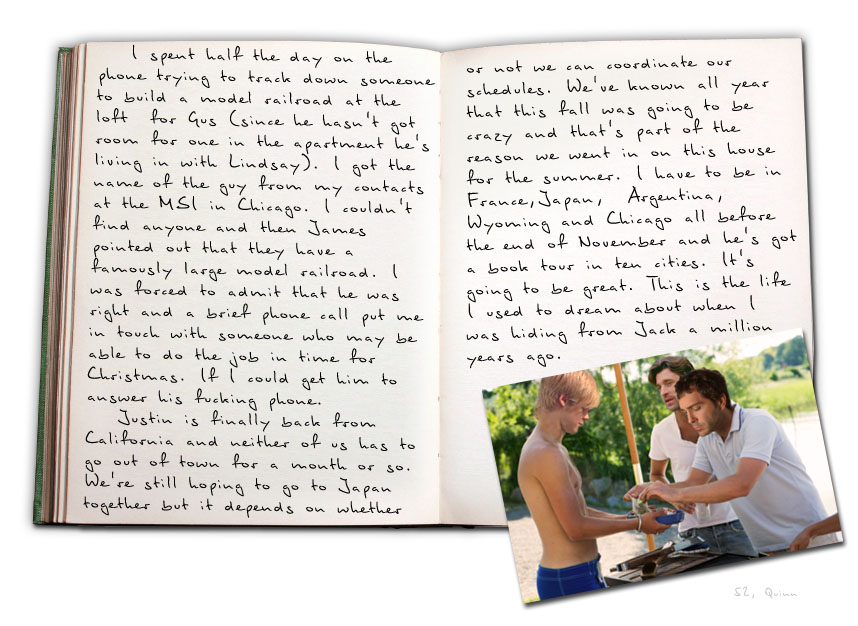 I spent half the day on the
phone trying to track down someone
to build a model railroad at the
loft for Gus (since he hasn't got
room for one in the apartment he's
living in with Lindsay). I got the
name of the guy from my contacts
at the MSI in Chicago. I couldn't
find anyone and then James
pointed out that they have a
famously large model railroad. I
was forced to admit that he was
right and a brief phone call put me
in touch with someone who may be
able to do the job in time for
Christmas. If I could get him to
answer his fucking phone.
Justin is finally back from
California and neither of us has to
go out of town for a month or so.
We're still hoping to go to Japan
together but it depends on whether
or not we can coordinate our
schedules. We've known all year
that this fall was going to be
crazy and that's part of the
reason we went in on this house
for the summer. I have to be in
France,Japan, Argentina,
Wyoming and Chicago all before
the end of November and he's got
a book tour in ten cities. It's
going to be great. This is the life
I used to dream about when I
was hiding from Jack a million
years ago.
52, Quinn